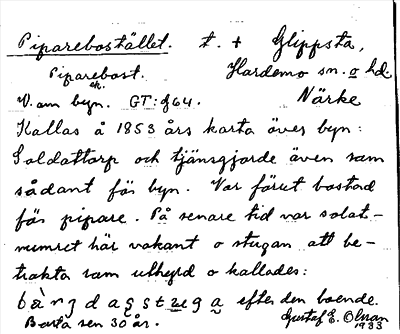 Piparebostället. t. + Glippsta,
Piparebost. Hardemo sn. o hd.
V. om byn. GT: f64. Närke
Kallas å 1853 års karta över byn:
Soldattorp och tjänsgjorde även som
sådant för byn. Var förut bostad
för pipare. På senare tid var soldat-
numret här vakant o stugan att be-
trakta som uthyrd o kallades:
efter den boende.
Borta sen 30 år. Gustaf E. Olman
1933